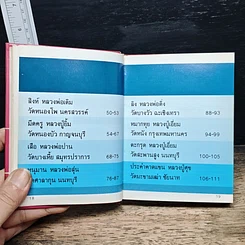 สิงห์ หลวงพ่อเดิม
วัดหนองโพ นครสวรรค์ 50-53
มีดครู หลวงปู่ยิ้ม
วัดหนองบัว กาญจนบุรี 54-67
เสือ หลวงพ่อปาน
วัดบางเหี้ย สมุทรปราการ 68-75
หนุมาน หลวงพ่อสุ่น
วัดศาลากุน นนทบุรี 76-87
ลิง หลวงพ่อดิ่ง
วัดบางวัว ฉะเชิงเทรา 88-93
หมากทุย หลวงปู่เอี่ยม
วัดหนัง กรุงเทพมหานคร 94-99
ตะกรุด หลวงปู่เอี่ยม
วัดสะพานสูง นนทบุรี 100-105
ประคำดาบแขน หลวงปู่ศุข
วัดมะขามเฒ่า ชัยนาท 106-111